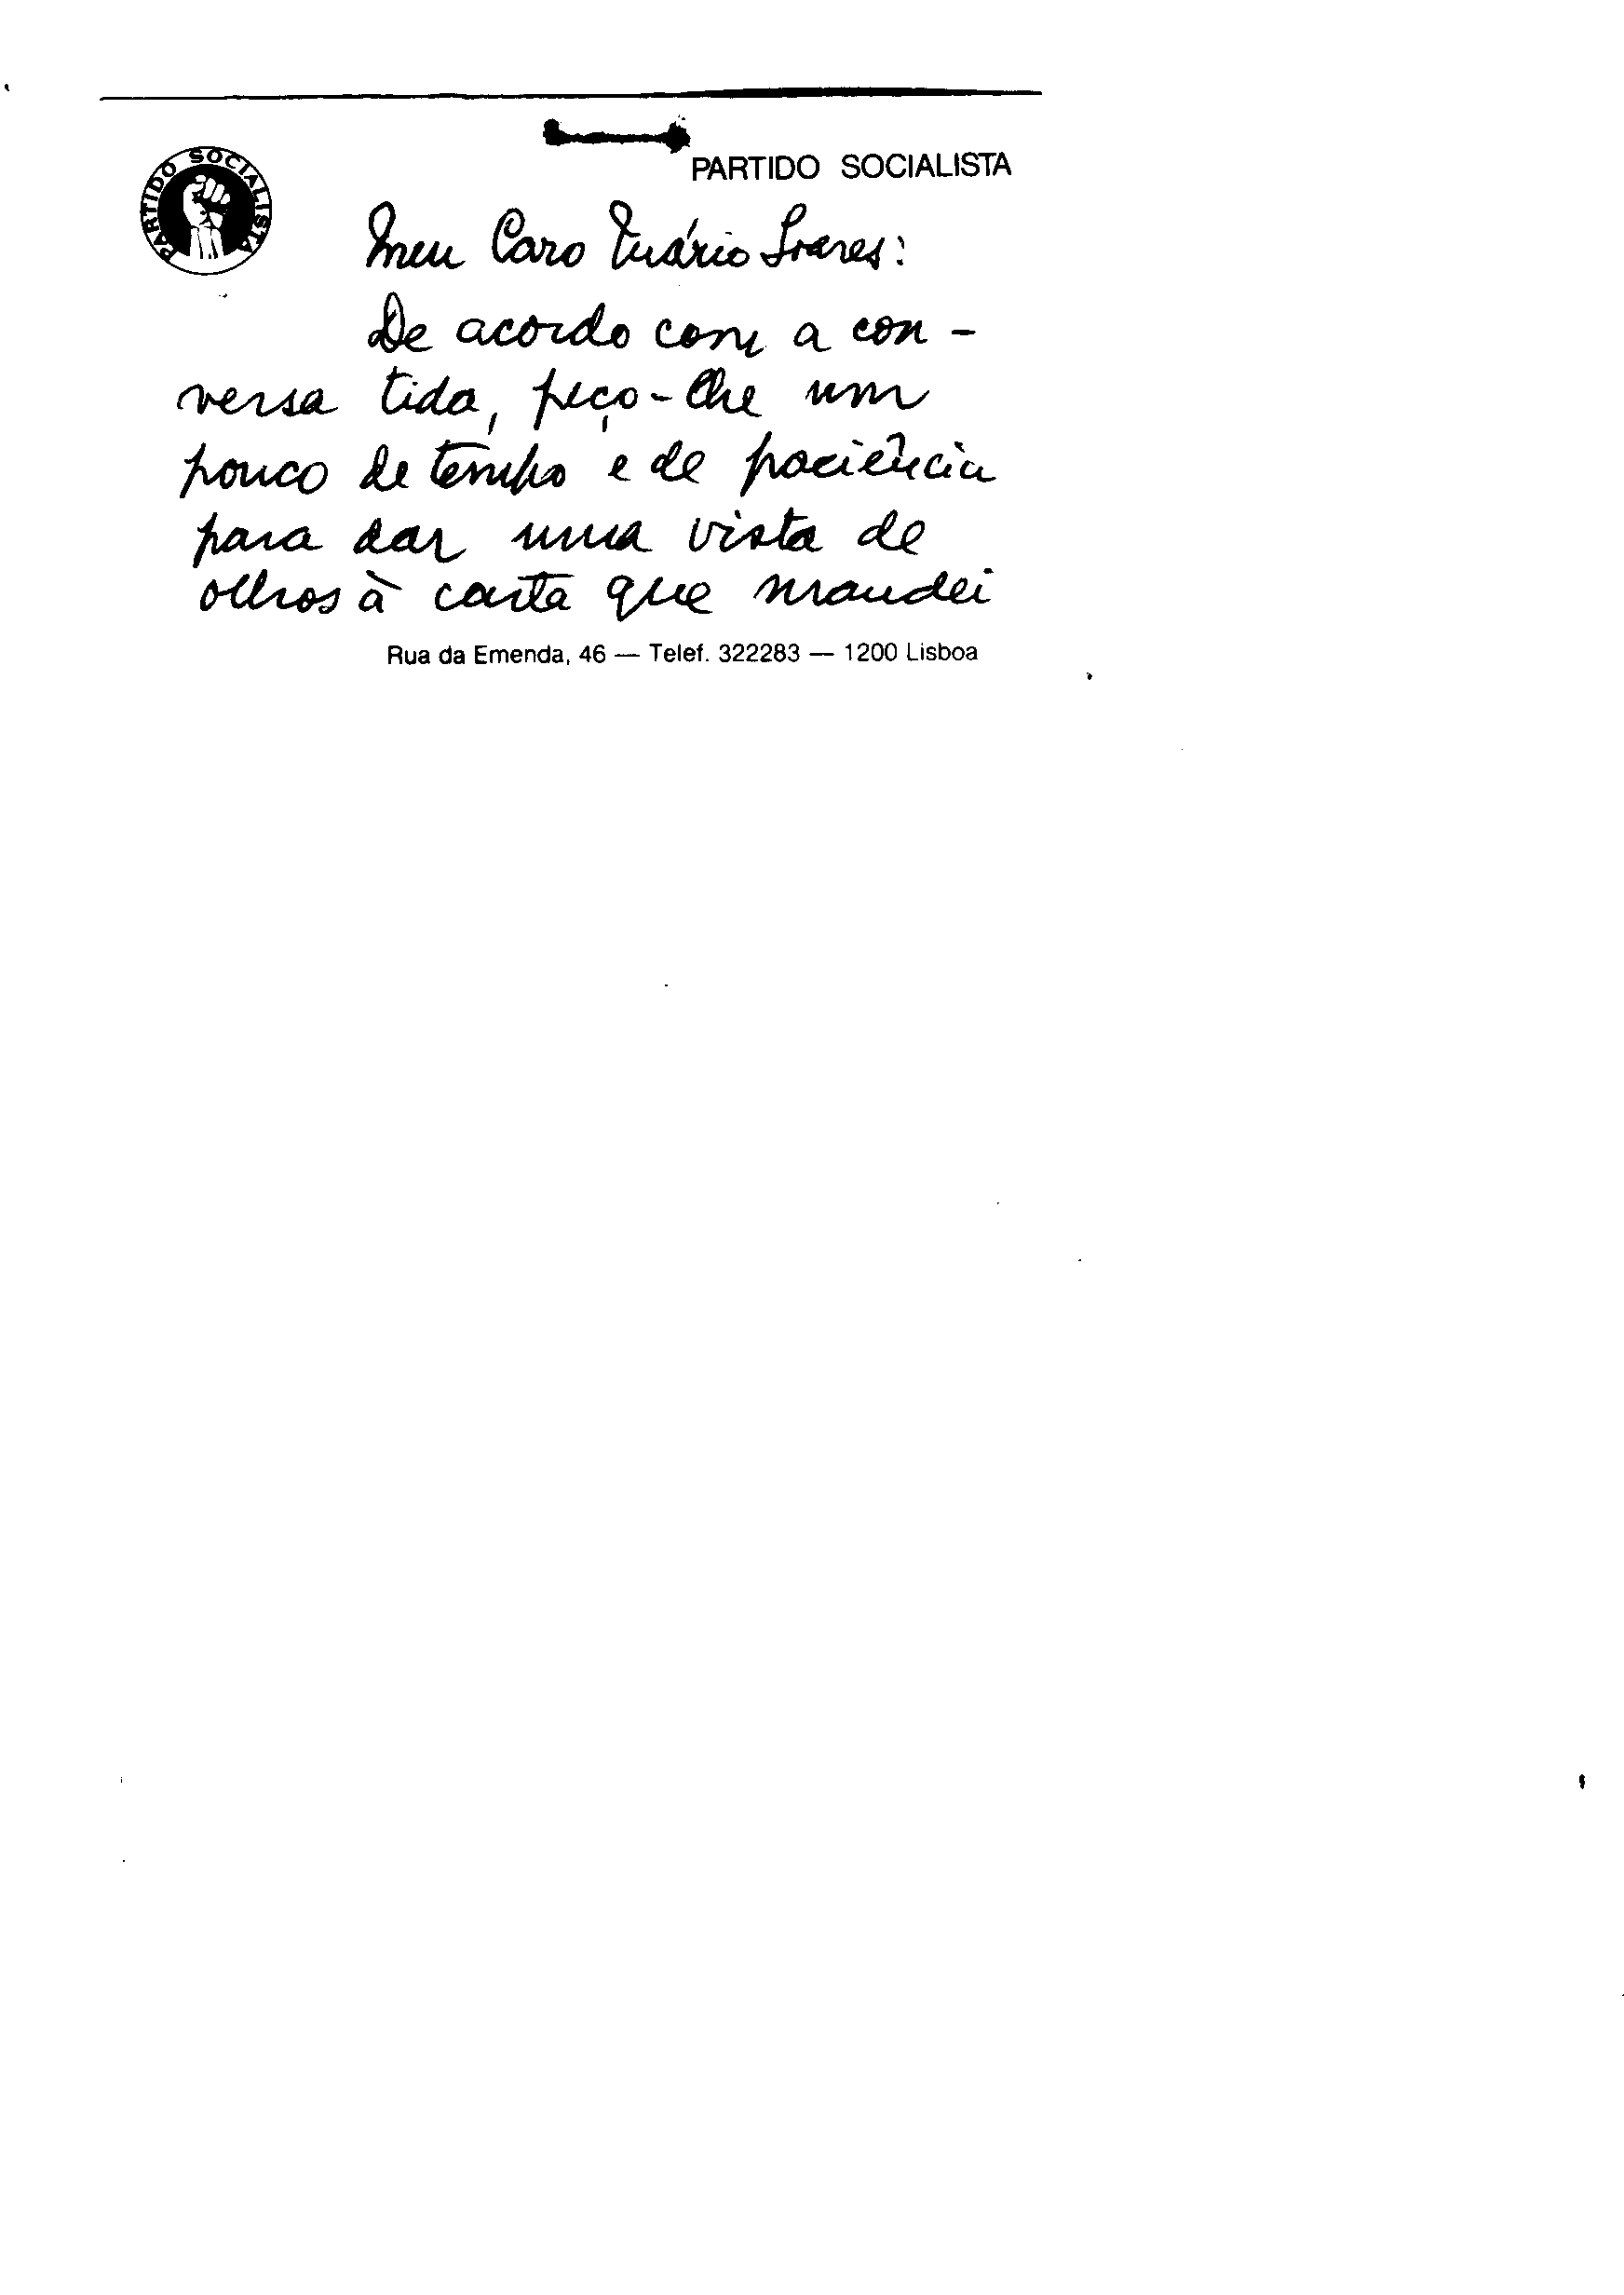 PARTIDO SOCIALISTA
PARTIDO SOCIALISTA
Meu Caro Mário Soares:
De acordo com a con-
versa tida, peço-lhe um
pouco de tempo e de paciência
para dar uma vista de
olhos à carta que mandei
Rua da Emenda, 46 — Telef. 322283 — 1200 Lisboa